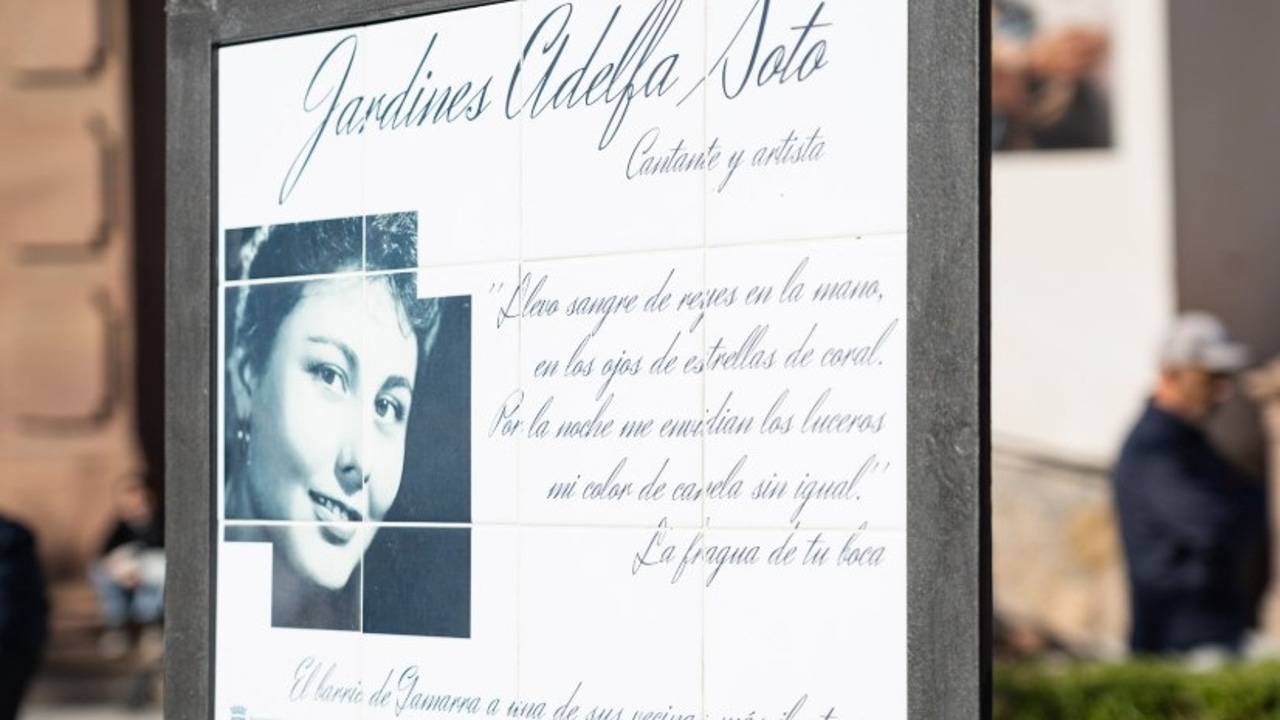 Jardines Adelfa Soto
Cantante y artista
"Llevo sangre de reyes en la mano,
en los ojos de estrellas de coral.
Por la noche me envidian los luceros
mi color de canela sin igual."
La fragua de tu boca
El barrio de Gamarra a una de sus